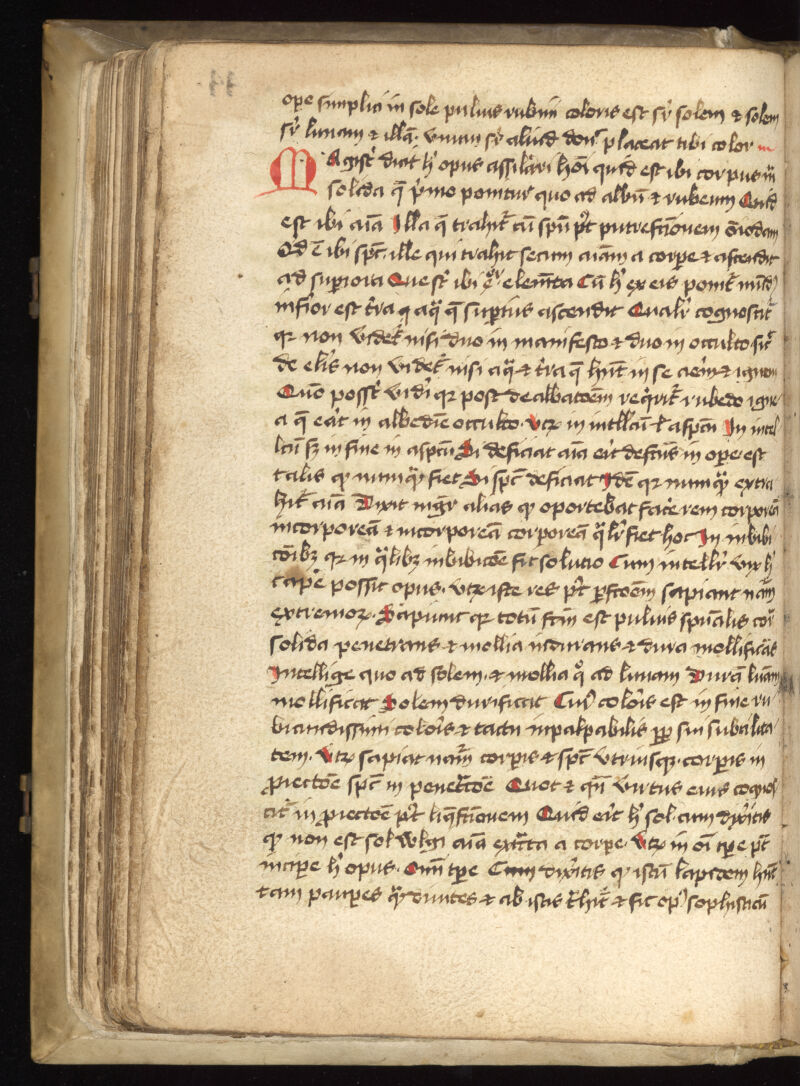 ope simplici in sole puluis rubini coloris est sr solem & solem
sr lunam & illa vnum sr aliud dor placeat tibi color
Magistr dicit h opus assilari hoi quid est ibi corpus
solida q pmo ponitur quo ad albu & rubeum Quid
est ibi aia Illa q trahit cu spu pt putrefctionem
Qd e ibi spc ille qui trahit secum aiam a corpe & ascendit
ad superiora Que st ibi elemeta Cu h ex eis ponit
inferior est tra q aq q superius ascendit Qualr cognoscit
qr non videt nisi duo in manifesto & duo in occulto sit
de elis non videt nisi aq & tra q hnt in se aerem & ignem
Quo posst videri qr post dealbatoem reqrit rubedo igne
a q erit in albedie occulto vtr in intllcu l aspcu In intel
lcu sz in fine in aspcu Si deficiat aia erit defcus in ope est
talis qp numq fiet Si spc deficiat Ide qr numq extra
hit aia Dixit mgr alias qp oportebat facere rem corpoream
incorporea & incorporea corporea qlr fiet hoc In inbibi
coibz qr in qlibz inbibicoe fit solutio Cum intellr vir h
cape possit opus vtr iste res pt pfcoem sapiant nam
extremor Sapiunt qr totu est puluis spualis cor
solida penetrans & mollia indurans & dura mollificas
Intellige quo ad solem & mollia q ad lunam Dura lunam
mollificat Solem durificat Cuius coloris est in fine ru
bicundissimi coloris & tactu inpalpabilis pp sui subtilita
tem vtr sapiat nam corpis & spc vtriusqp corpis in
proiectoe spc in penetrcoe Quot & qn virtus eius cognos
cit in proiectoe pt liqfctionem Quid erit h sol cum dixitis
qp non est sol wlgi aia extrcta a corpe vtr in oi tpe pt
incipe h opus Omi tpe Cum dixitis qp istu lapidem hnt
tam paupes q diuites & ab istis & sic op sophisticu